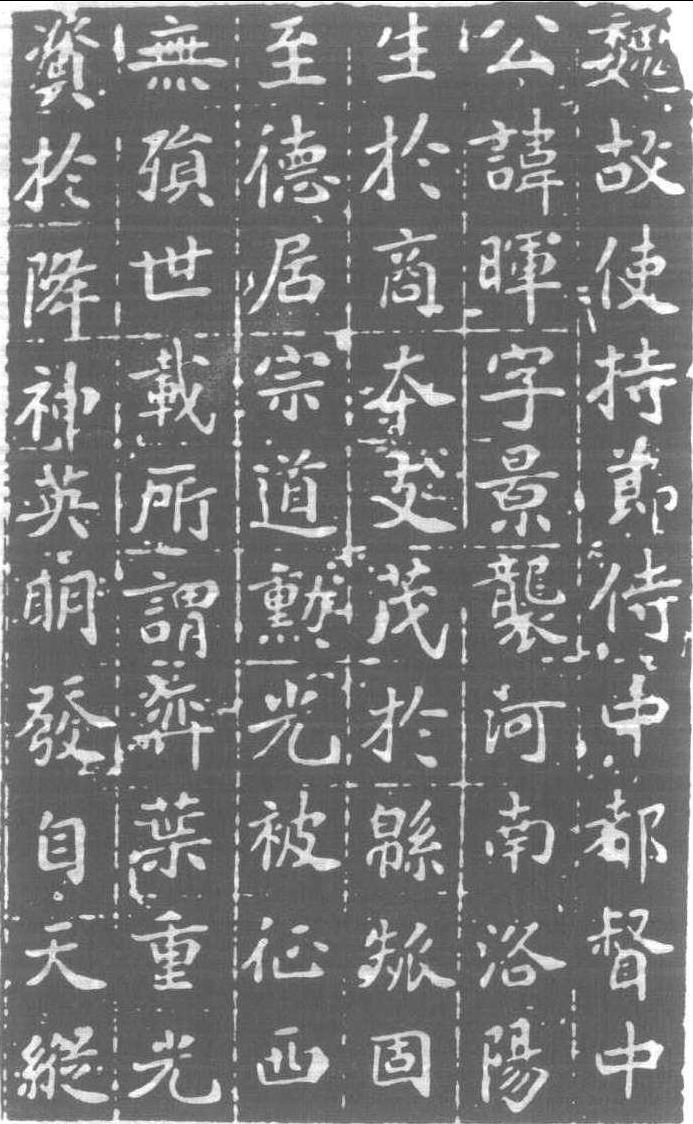 魏故使持節侍中都督中
公諱暉字景襲河南洛陽
生於商本支茂於緜瓞固
至德居宗道勲光被征西
無殞世載所謂弈葉重光
資於降神英朗發自天縱